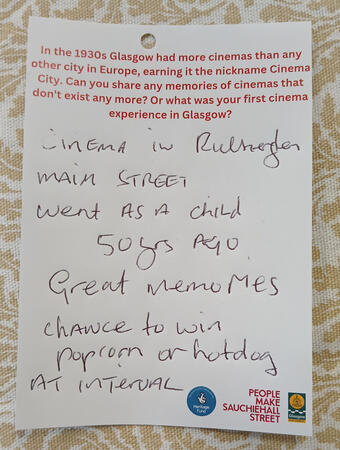 In the 1930s Glasgow had more cinemas than any
other city in Europe, earning it the nickname Cinema
City. Can you share any memories of cinemas that
don't exist any more? Or what was your first cinema
experience in Glasgow?
CINEMA IN Rutherglen
MAIN STREET
Went AS A child
50 yrs AGO
Great memories
chance to win
popcorn or hotdog
AT INTERVAL
Heritage
Fund
PEOPLE
MAKE
SAUCHIEHALL
STREET
Glasgow